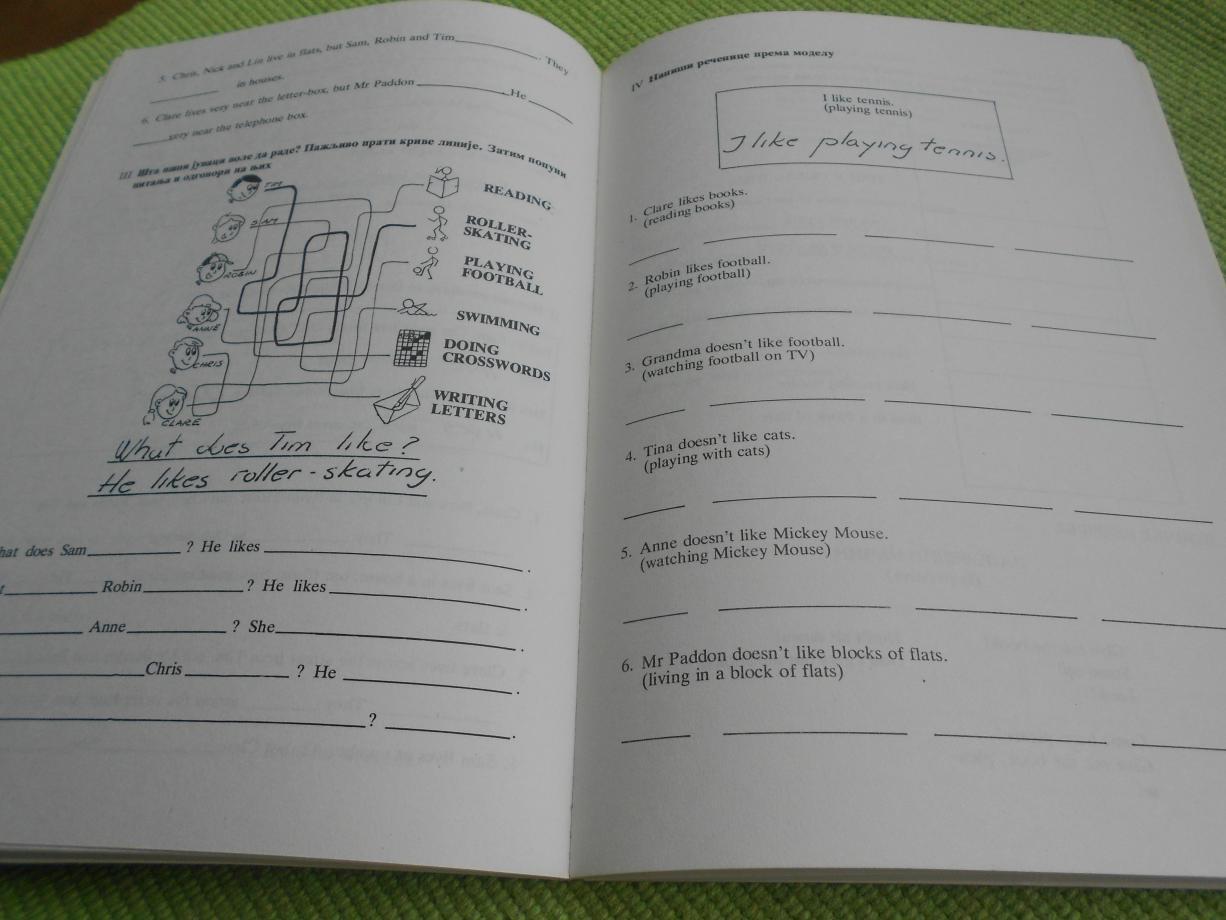 5. Chris, Nick and Lin live in flats, but Sam, Robin and Tim____________. They
__________ in houses.
6. Clare lives very near the letter-box, but Mr Paddon ____________. He ______
______very near the telephone box.
III Шта наши јунаци воле да раде? Пажљиво прати криве линије. Затим попуни
питања и одговори на њих
TIM
SAM
ROBIN
ANNE
CHRIS
CLARE
READING
ROLLER-
SKATING
PLAYING
FOOTBALL
SWIMMING
DOING
CROSSWORDS
WRITING
LETTERS
What does Tim like?
He likes roller-skating.
hat does Sam____________? He likes ______________________.
____________ Robin____________? He likes ______________________.
____________ Anne____________? She______________________.
____________Chris____________? He ______________________.
____________________________? ______________________.
IV Напиши реченице према моделу
I like tennis.
(playing tennis)
I like playing tennis.
1. Clare likes books.
(reading books)
2. Robin likes football.
(playing football)
3. Grandma doesn't like football.
(watching football on TV)
4. Tina doesn't like cats.
(playing with cats)
5. Anne doesn't like Mickey Mouse.
(watching Mickey Mouse)
6. Mr Paddon doesn't like blocks of flats.
(living in a block of flats)